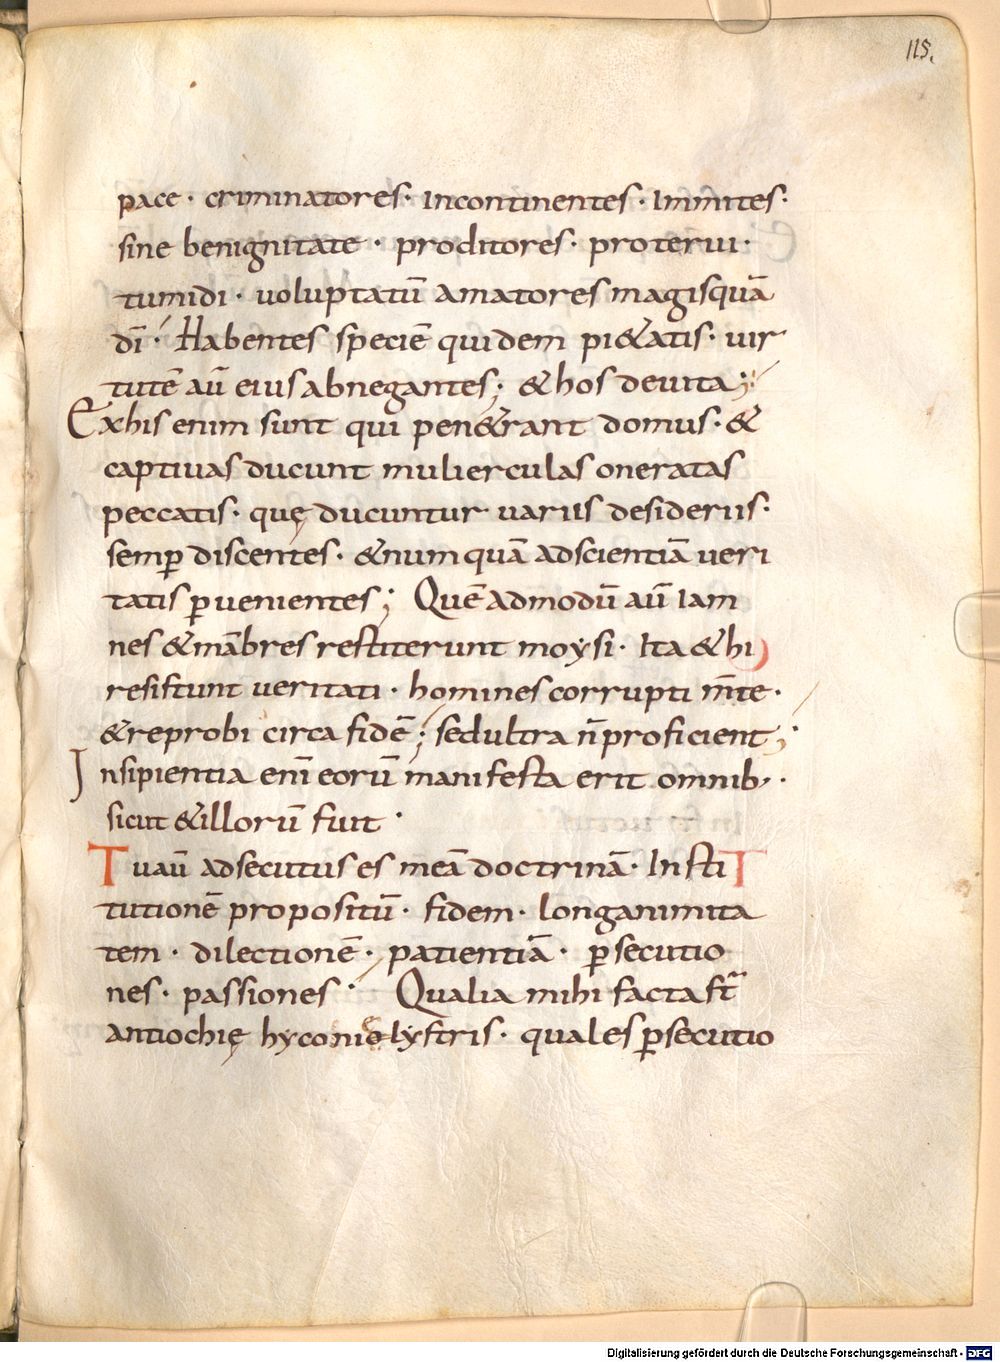 115.
pace · criminatores · incontinentes · Inmites ·
sine benignitate · proditores · proterui ·
tumidi · uoluptatū amatores magisquā
dī · Habentes speciē quidem pi&atis · uir
tutē aū eius abnegantes; & hos deuita;
Exhis enim sunt qui pen&rant domus · &
captiuas ducunt mulierculas oneratas
peccatis · quę ducuntur uariis desideriis ·
semꝑ discentes · &numquā adscientiā ueri
tatis ꝑuenientes; Quē admodū aū Iam
nes &mābres restiterunt moysi · Ita &hi
resistunt ueritati · homines corrupti m̄te ·
&reprobi circa fidē; sedultra n̄ proficient;
Insipientia enī eorū manifesta erit omnib; ·
sicut &illorū fuit ·
Tuaū adsecutus es meā doctrinā · Insti
tutionē propositū · fidem · longanimita
tem · dilectionē · patientiā · ꝑsecutio
nes · passiones · Qualia mihi facta st̄
antiochię hyconię lystris · quales ꝑsecutio
Digitalisierung gefördert durch die Deutsche Forschungsgemeinschaft - DFG